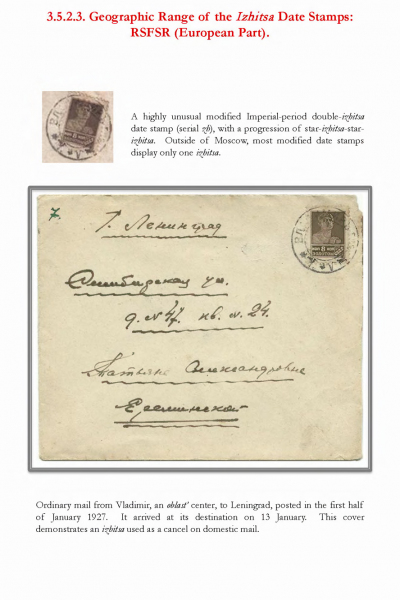 3.5.2.3. Geographic Range of the Izhitsa Date Stamps:
RSFSR (European Part).
A highly unusual modified Imperial-period double-izhitsa
date stamp (serial zh), with a progression of star-izhitsa-star-
izhitsa. Outside of Moscow, most modified date stamps
display only one izhitsa.
Г. Ленинград
Симбирская ул.
д. № 47 кв. № 24.
Татьяне Александровне
Ереминской
Ordinary mail from Vladimir, an oblast' center, to Leningrad, posted in the first half
of January 1927. It arrived at its destination on 13 January. This cover
demonstrates an izhitsa used as a cancel on domestic mail.